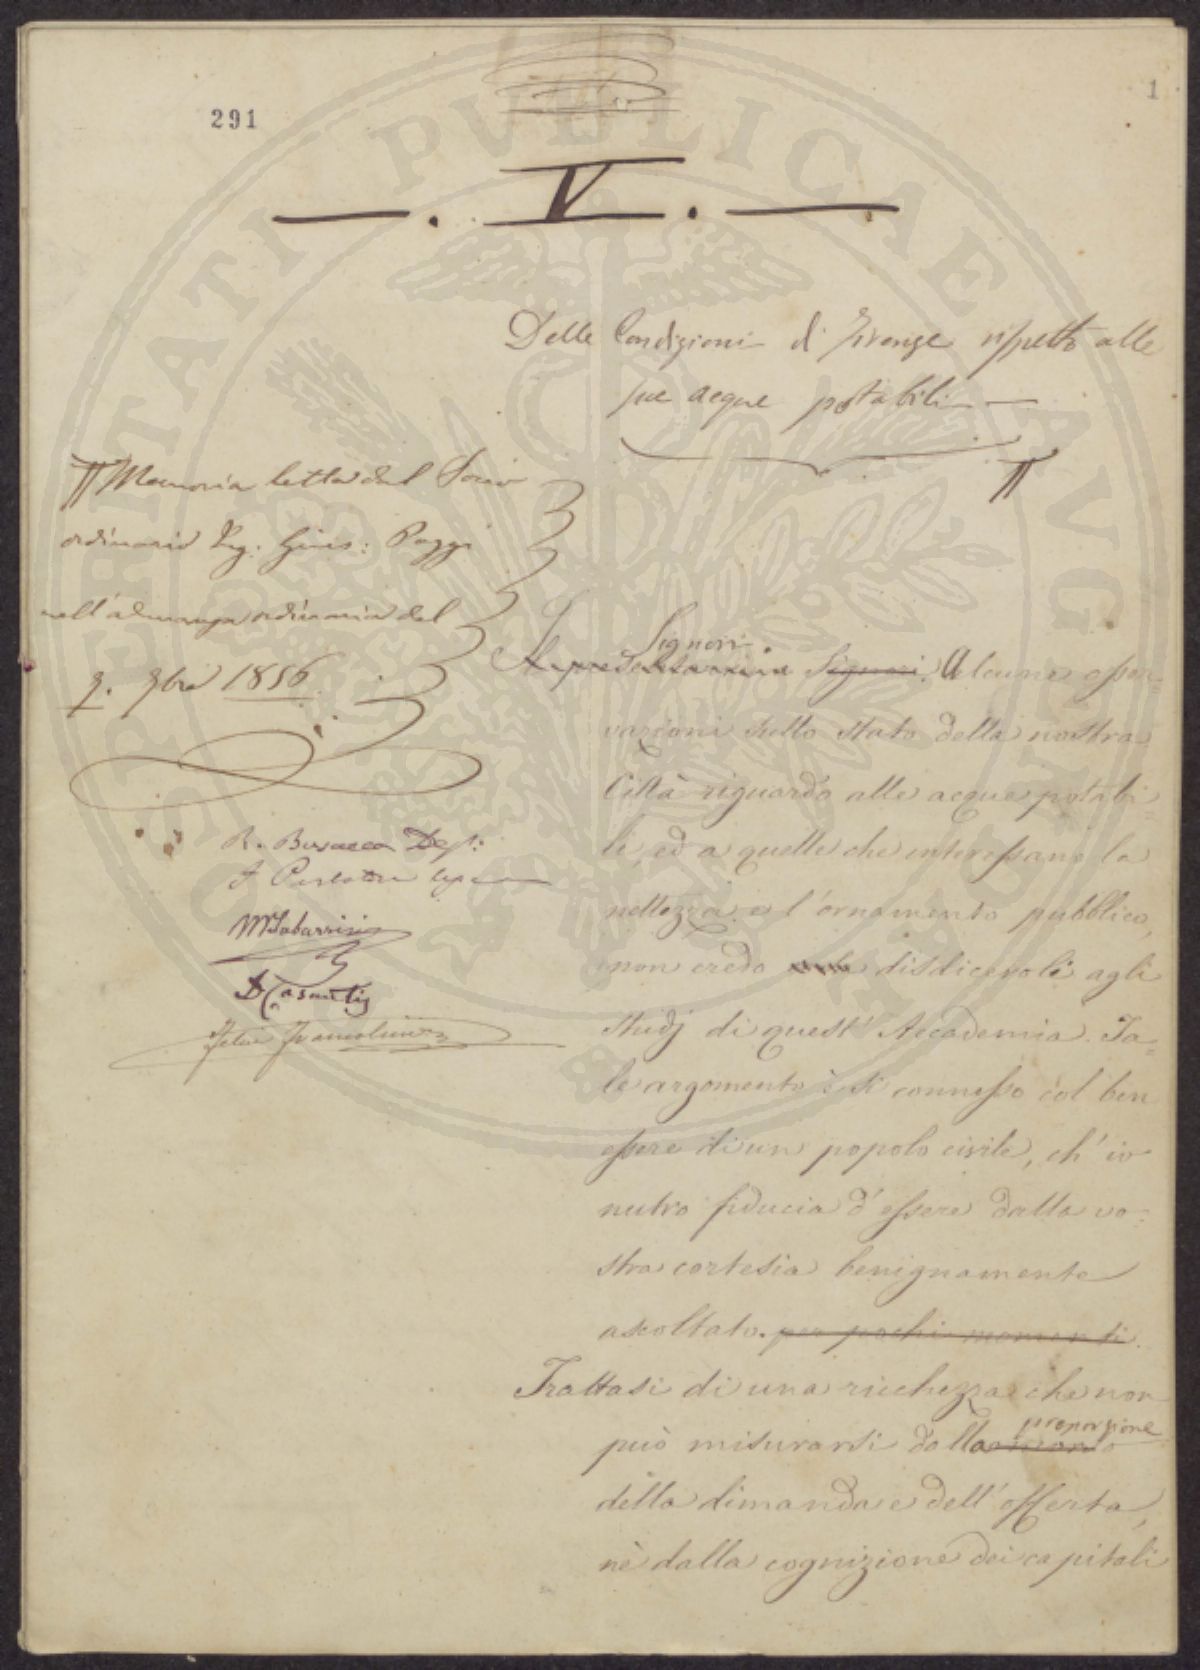 291
1
. V .
Delle Condizioni di Firenze rispetto alle
sue acque potabili
Memoria letta dal Socio
ordinario Ing. Gius: Poggi
nell'adunanza ordinaria del
9bre 1856
R. Busacca Dep:
MTabarrini
Felice Francolini
PROSPERITATI PUBLICAE AUGENDAE
Signori
Signori. Alcune osser=
vazioni sullo stato della nostra
Città riguardo alle acque potabi=
li, ed a quelle che interessano la
nettezza e l'ornamento pubblico,
non credo disdicevoli agli
studj di quest'Accademia. Ta=
le argomento è sì connesso col ben
essere di un popolo civile, ch'io
nutro fiducia d'essere dalla vo=
stra cortesia benignamente
ascoltato. per pochi momenti.
Trattasi di una ricchezza che non
proporzione
può misurarsi dalla
della dimanda e dell'offerta,
nè dalla cognizione dei capitali